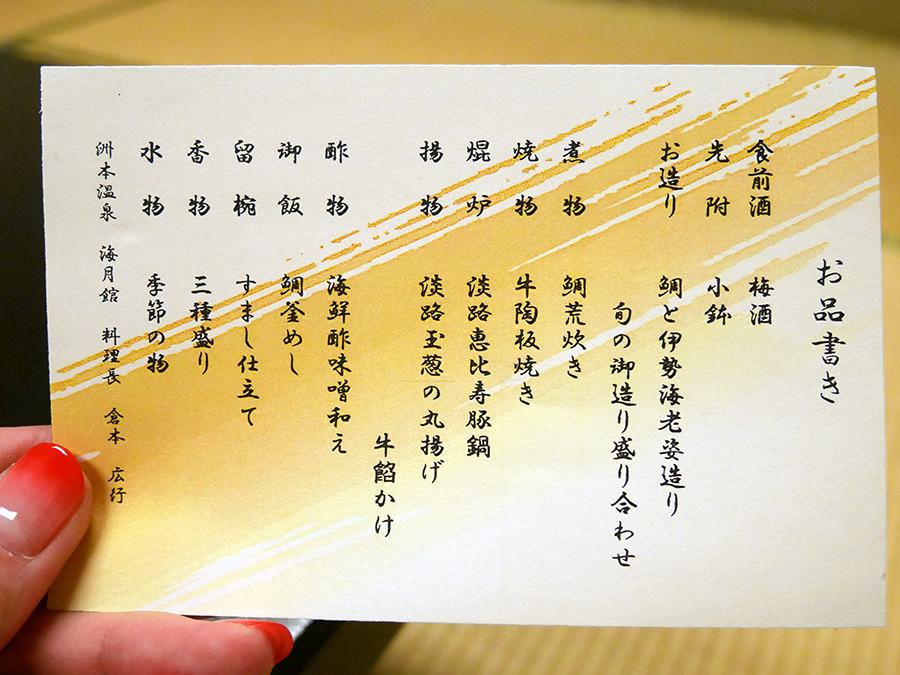 お品書き
食前酒 梅酒
先附 小鉢
お造り 鯛と伊勢海老姿造り
旬の御造り盛り合わせ
煮物 鯛荒炊き
焼物 牛陶板焼き
焜炉 淡路恵比寿豚鍋
揚物 淡路玉葱の丸揚げ
牛餡かけ
酢物 海鮮酢味噌和え
御飯 鯛釜めし
留椀 すまし仕立て
香物 三種盛り
水物 季節の物
洲本温泉 海月館 料理長 倉本 広行